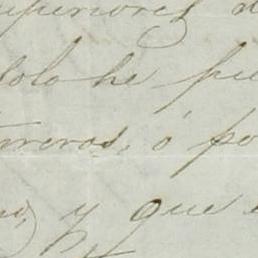 superiores d
solo he pu
rreros, ó po
y que